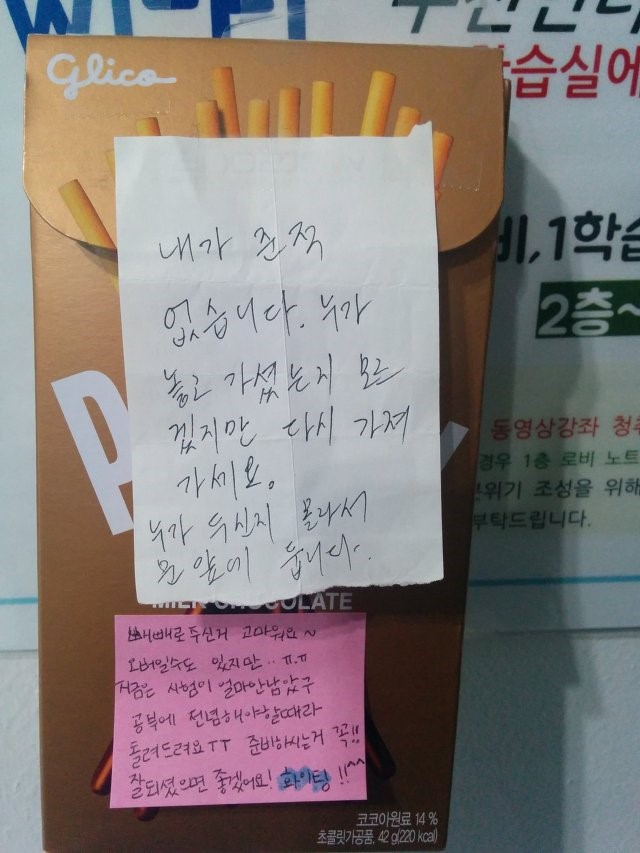 Glico
습실에
비,1학습
2층~
내가 준적
없습니다. 누가
놓고 가셨는지 모르
겠지만 다시 가져
가세요.
누가 두신지 몰라서
문 앞에 둡니다.
동영상강좌 청취
경우 1층 로비 노트
분위기 조성을 위해
부탁드립니다.
MILK CHOCOLATE
빼빼로 두신거 고마워요~
오버일수도 있지만.. ㅠ.ㅠ
지금은 시험이 얼마안남았구
공부에 전념해야할때라
돌려드려요TT 준비하시는거 꼭!!
잘되셨으면 좋겠어요! 화이팅!!^^
코코아원료 14 %
초콜릿가공품, 42 g(220 kcal)